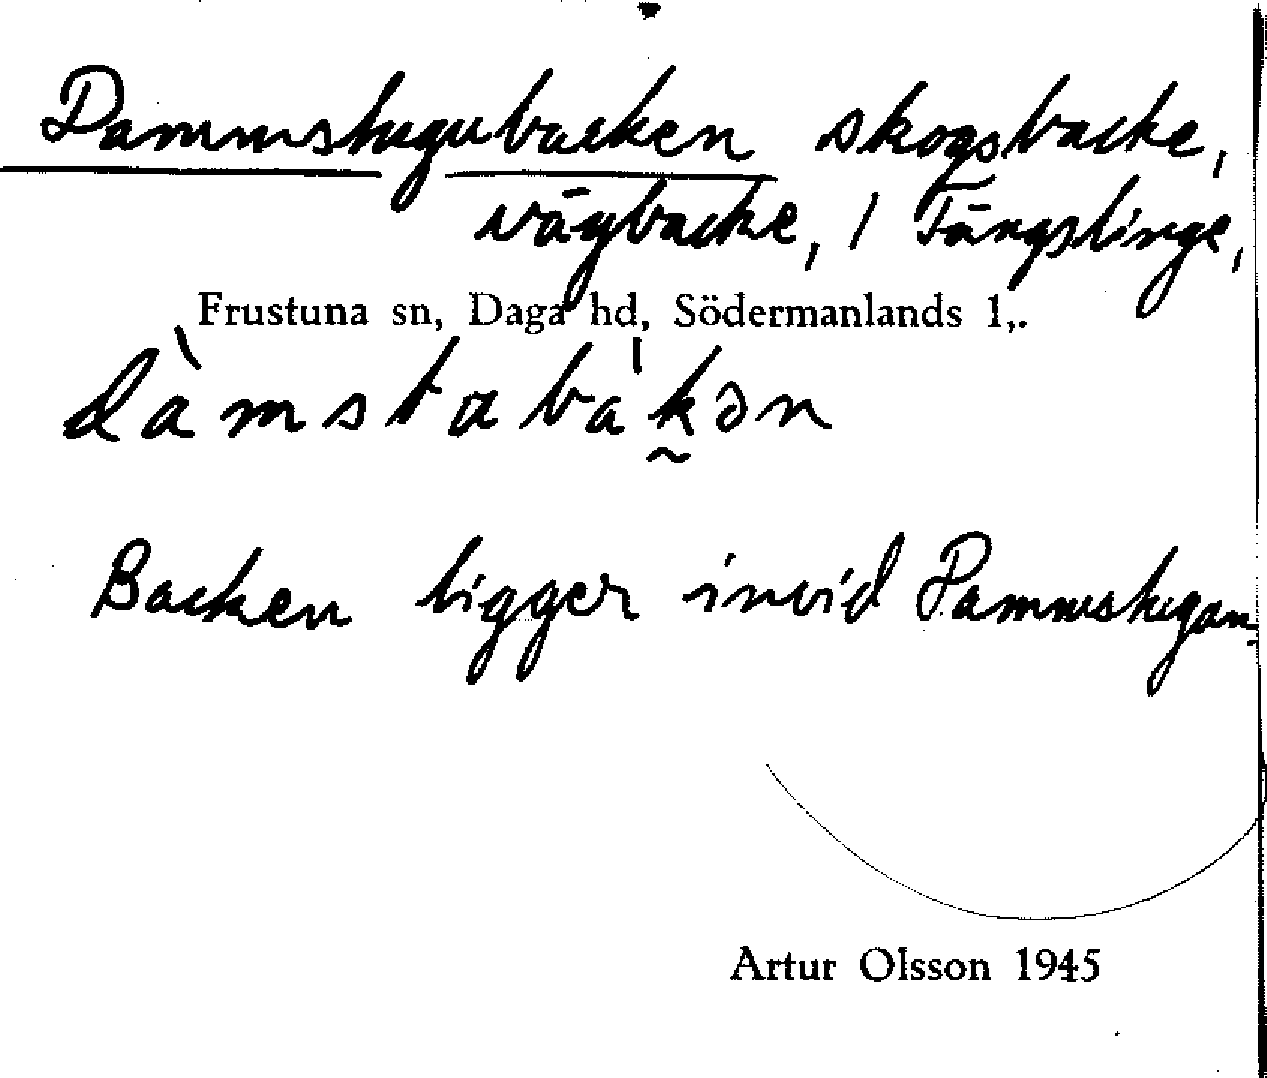 Dammstugubacken skogsbacke,
vägbacke, / Tängslinge,
Frustuna sn, Daga hd, Södermanlands l,.
dàmstabàkən
Backen ligger invid Dammstugan.
Artur Olsson 1945